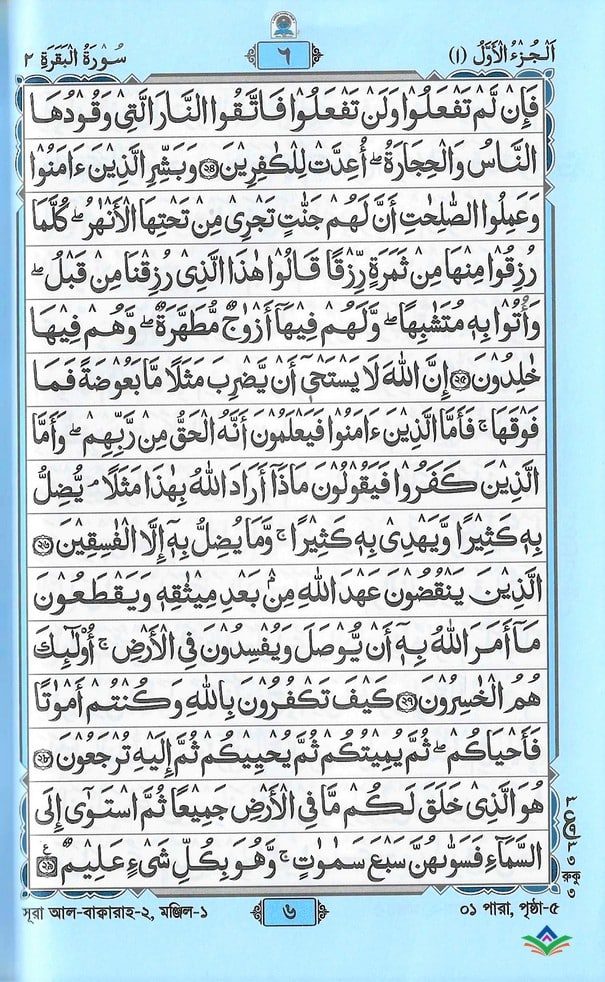 اَلْجُزْءُ الْأَوَّلُ (١)
٦
سُورَةُ الْبَقَرَةِ ٢
فَإِن لَّمْ تَفْعَلُوا وَلَن تَفْعَلُوا فَاتَّقُوا النَّارَ الَّتِىْ وَقُوْدُهَا
النَّاسُ وَالْحِجَارَةُ ۖ أُعِدَّتْ لِلْكٰفِرِيْنَ ۝٢٤ وَبَشِّرِ الَّذِيْنَ ءَامَنُوْا
وَعَمِلُوا الصّٰلِحٰتِ أَنَّ لَهُمْ جَنّٰتٍ تَجْرِىْ مِنْ تَحْتِهَا الْأَنْهٰرُ ۖ كُلَّمَا
رُزِقُوْا مِنْهَا مِنْ ثَمَرَةٍ رِّزْقًا قَالُوْا هٰذَا الَّذِىْ رُزِقْنَا مِنْ قَبْلُ ۖ
وَأُتُوْا بِهٖ مُتَشٰبِهًا ۖ وَّلَهُمْ فِيْهَآ أَزْوٰجٌ مُّطَهَّرَةٌ ۖ وَّهُمْ فِيْهَا
خٰلِدُوْنَ ۝٢٥ إِنَّ اللهَ لَا يَسْتَحْىٖٓ أَنْ يَّضْرِبَ مَثَلًا مَّا بَعُوْضَةً فَمَا
فَوْقَهَا ۚ فَأَمَّا الَّذِيْنَ ءَامَنُوْا فَيَعْلَمُوْنَ أَنَّهُ الْحَقُّ مِنْ رَّبِّهِمْ ۖ وَأَمَّا
الَّذِيْنَ كَفَرُوْا فَيَقُوْلُوْنَ مَاذَآ أَرَادَ اللهُ بِهٰذَا مَثَلًا ۘ يُضِلُّ
بِهٖ كَثِيْرًا وَّيَهْدِىْ بِهٖ كَثِيْرًا ۚ وَّمَا يُضِلُّ بِهٖٓ إِلَّا الْفٰسِقِيْنَ ۝٢٦
الَّذِيْنَ يَنْقُضُوْنَ عَهْدَ اللهِ مِنْۢ بَعْدِ مِيْثٰقِهٖ وَيَقْطَعُوْنَ
مَآ أَمَرَ اللهُ بِهٖٓ أَنْ يُّوْصَلَ وَيُفْسِدُوْنَ فِى الْأَرْضِ ۚ أُولٰٓئِكَ
هُمُ الْخٰسِرُوْنَ ۝٢٧ كَيْفَ تَكْفُرُوْنَ بِاللهِ وَكُنْتُمْ أَمْوٰتًا
فَأَحْيَاكُمْ ۖ ثُمَّ يُمِيْتُكُمْ ثُمَّ يُحْيِيْكُمْ ثُمَّ إِلَيْهِ تُرْجَعُوْنَ ۝٢٨
هُوَ الَّذِىْ خَلَقَ لَكُمْ مَّا فِى الْأَرْضِ جَمِيْعًا ثُمَّ اسْتَوٰىٓ إِلَى
السَّمَآءِ فَسَوّٰىهُنَّ سَبْعَ سَمٰوٰتٍ ۚ وَّهُوَ بِكُلِّ شَىْءٍ عَلِيْمٌ ۝٢٩
রুকু ৩
সূরা আল-বাক্বারাহ-২, মঞ্জিল-১
৬
০১ পারা, পৃষ্ঠা-৫